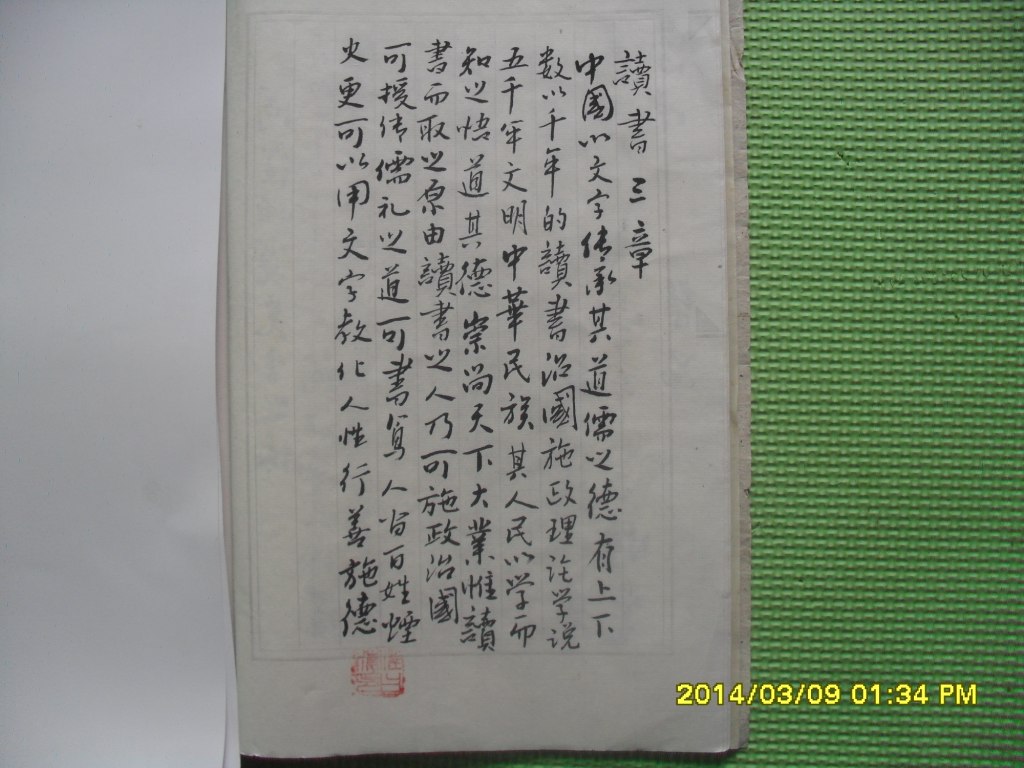 讀書三章
中國以文字传承其道儒以德有上下
数以千年的讀書治國施政理论学说
五千年文明中華民族其人民以学而
知之悟道其德崇尚天下大業惟讀
書而取之原由讀書之人乃可施政治國
可授传儒礼之道可書寫人皆百姓煙
火更可以用文字教化人性行善施德
2014/03/09 01:34 PM